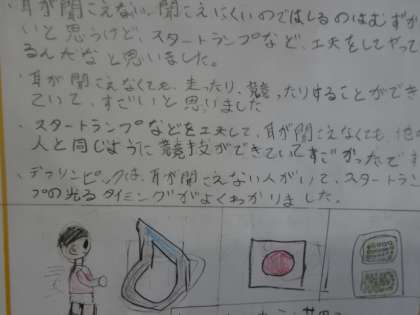 ・耳が聞こえない、聞こえにくいのではしるのはむずかし
いと思うけど、スタートランプなど、工夫をしてやって
るんだなと思いました。
・耳が聞こえなくても、走ったり、競ったりすることができ
ていて、すごいと思いました
・スタートランプなどを工夫して、耳が聞こえなくても、他の
人と同じように競技ができていてすごかったです
・デフリンピックは、耳が聞こえない人がいて、スタートラン
プの光るタイミングがよくわかりました。